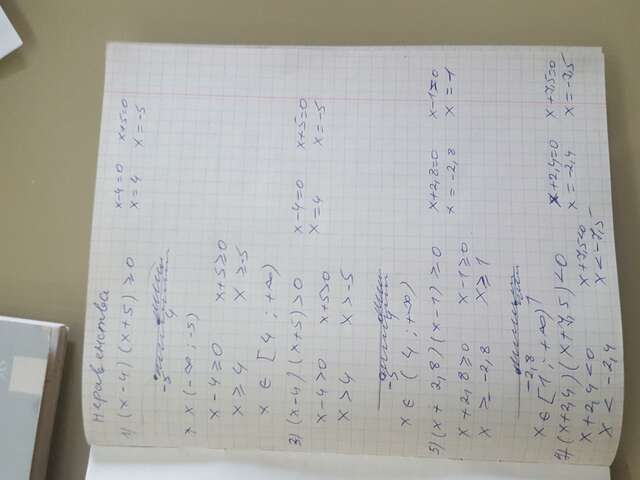 Неравенства
1) (x-4)(x+5) ≥ 0 x-4=0 x+5=0
x=4 x=-5
-5 4
x (-∞; -5)
x-4≥0 x+5≥0
x≥4 x≥-5
x ∈ [4; +∞)
2) (x-4)(x+5)>0 x-4=0 x+5=0
x=4 x=-5
x-4>0 x+5>0
x>4 x>-5
-5 4
x ∈ (4; +∞)
5) (x+2,8)(x-1)≥0 x+2,8=0 x-1=0
x=-2,8 x=-1
x+2,8≥0 x-1≥0
x≥-2,8 x≥1
-2,8 1
x ∈ [1; +∞)
(x+2,4)(x+7,5)<0 x+2,4=0 x+7,5=0
x=-2,4 x=-7,5
x+2,4<0 x+7,5<0
x<-2,4 x<-7,5